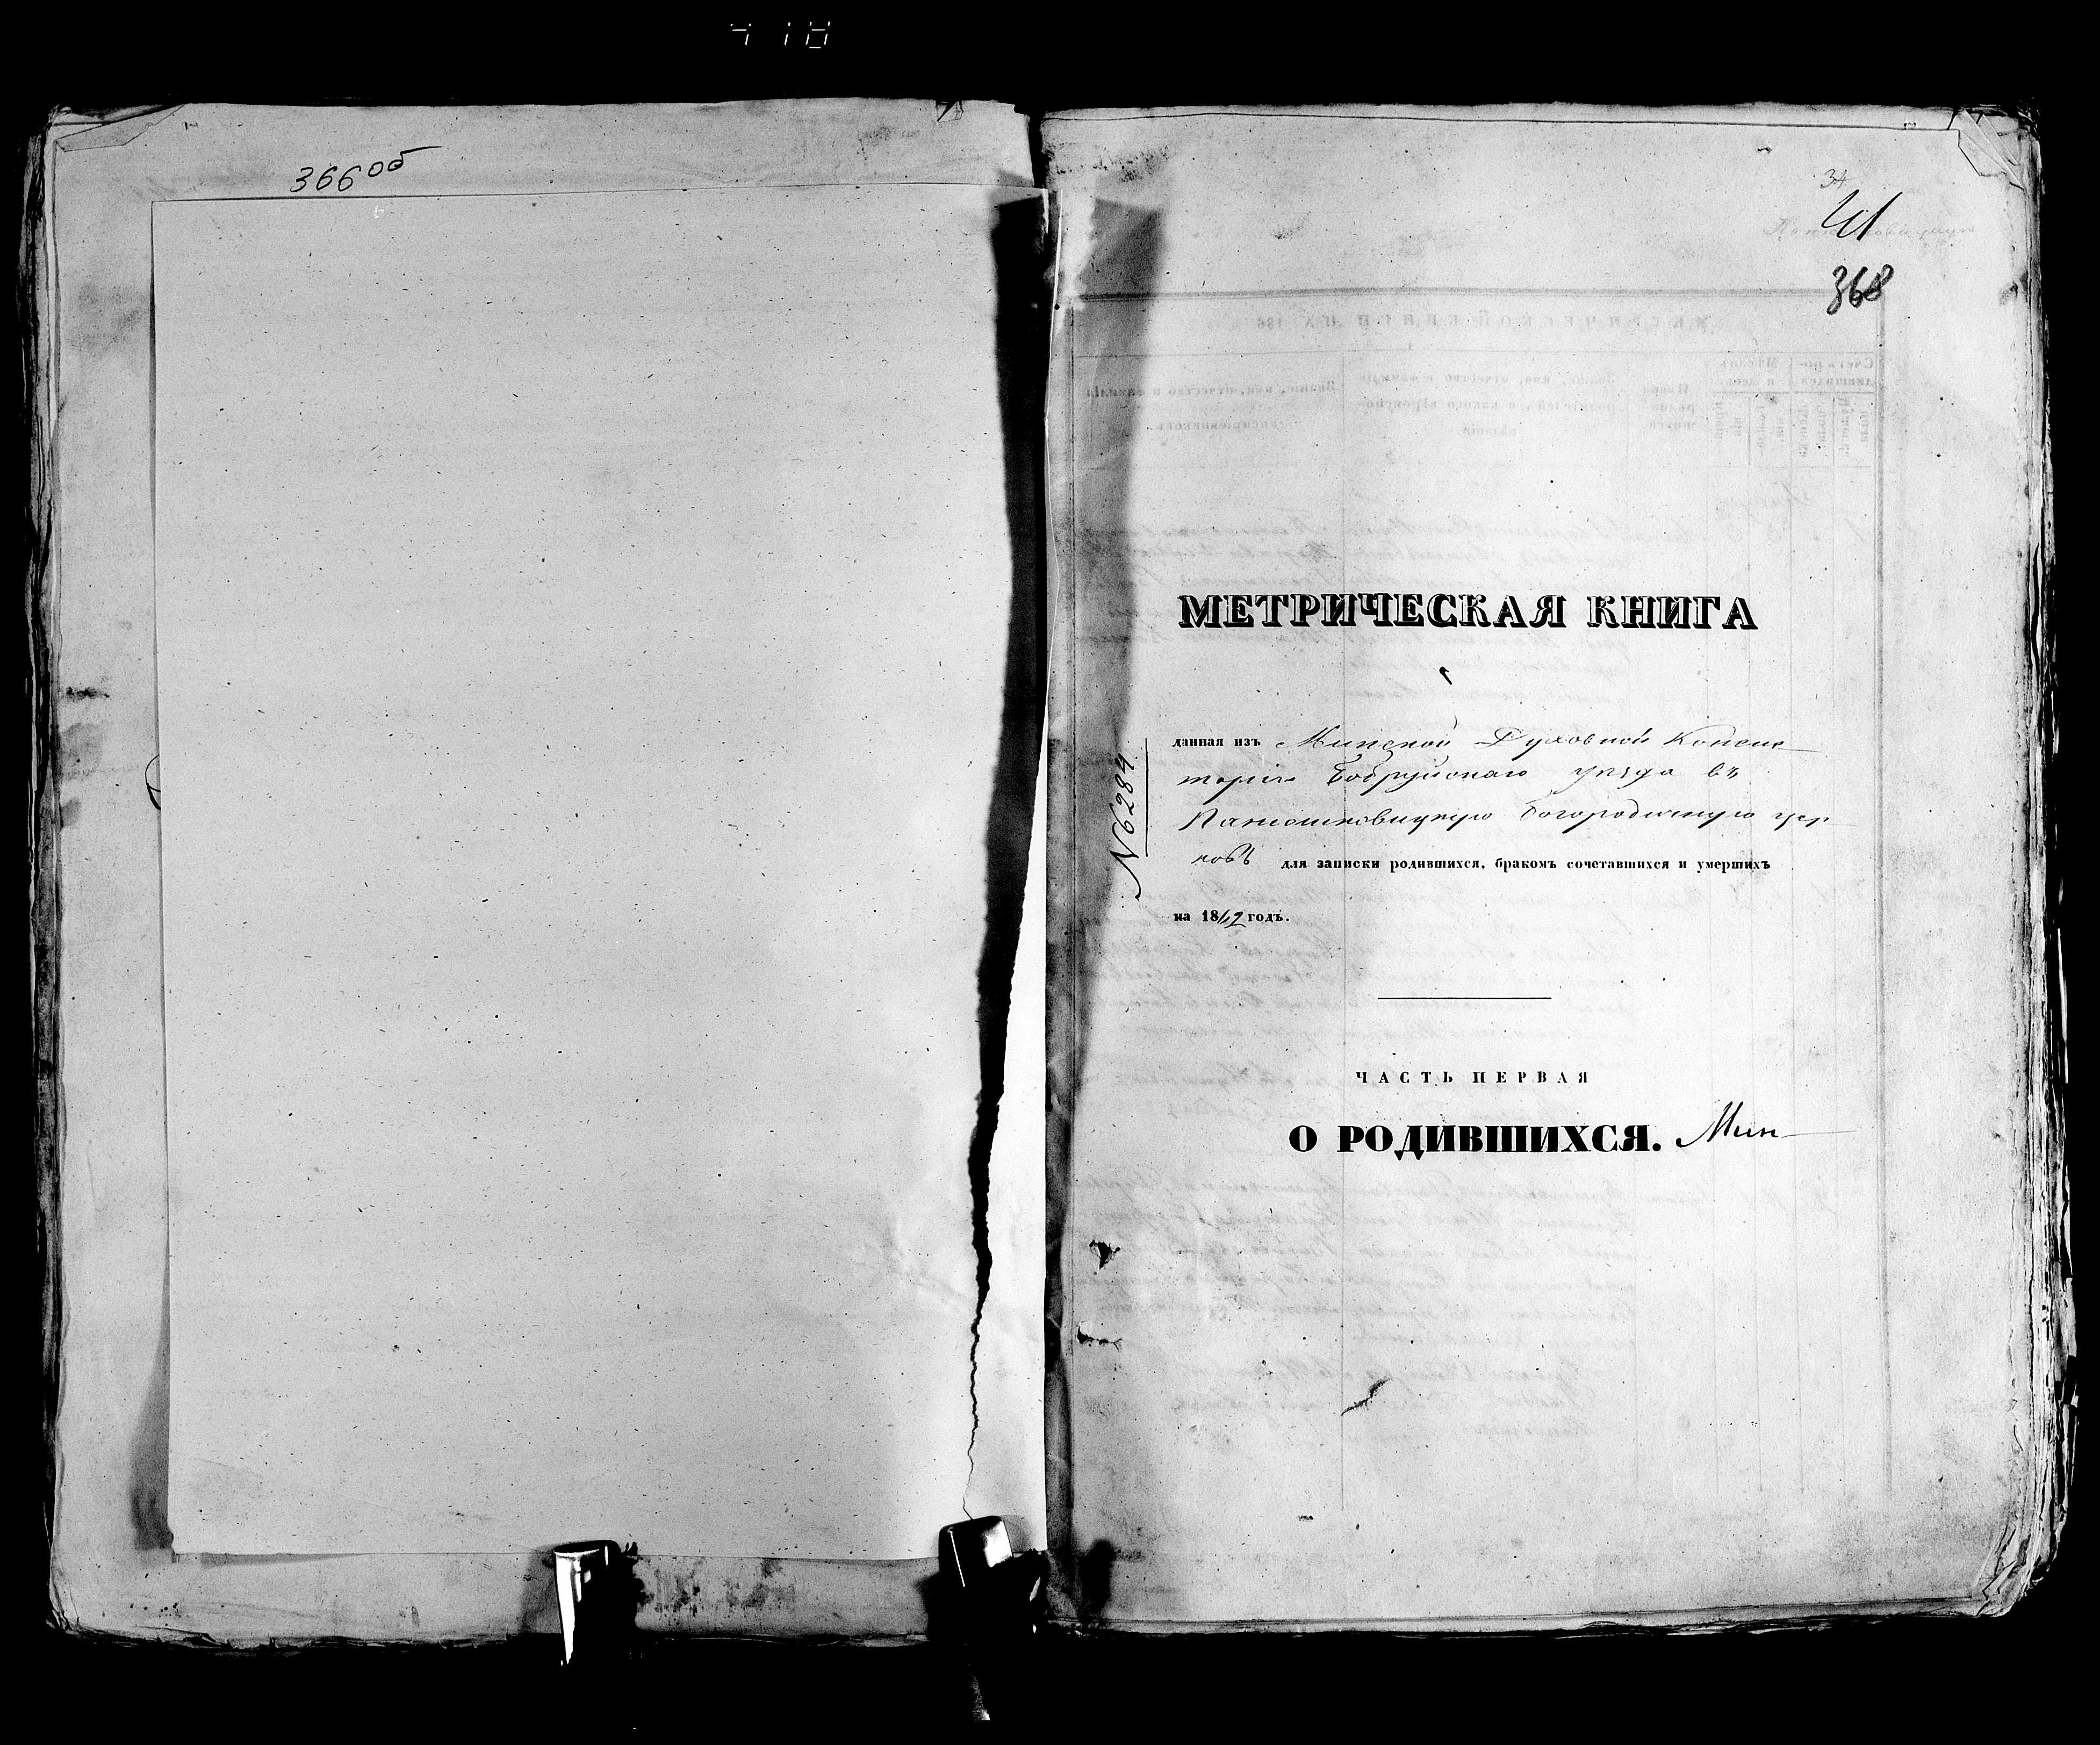 418
366об
34
41
368
МЕТРИЧЕСКАЯ КНИГА
данная изъ Минской Духовной Консис
торіи Бобруйскаго уѣзда въ
Богородичную цер
ковь для записки родившихся, бракомъ сочетавшихся и умершихъ
на 1842 годъ.
N 6284
ЧАСТЬ ПЕРВАЯ
О РОДИВШИХСЯ. Мин